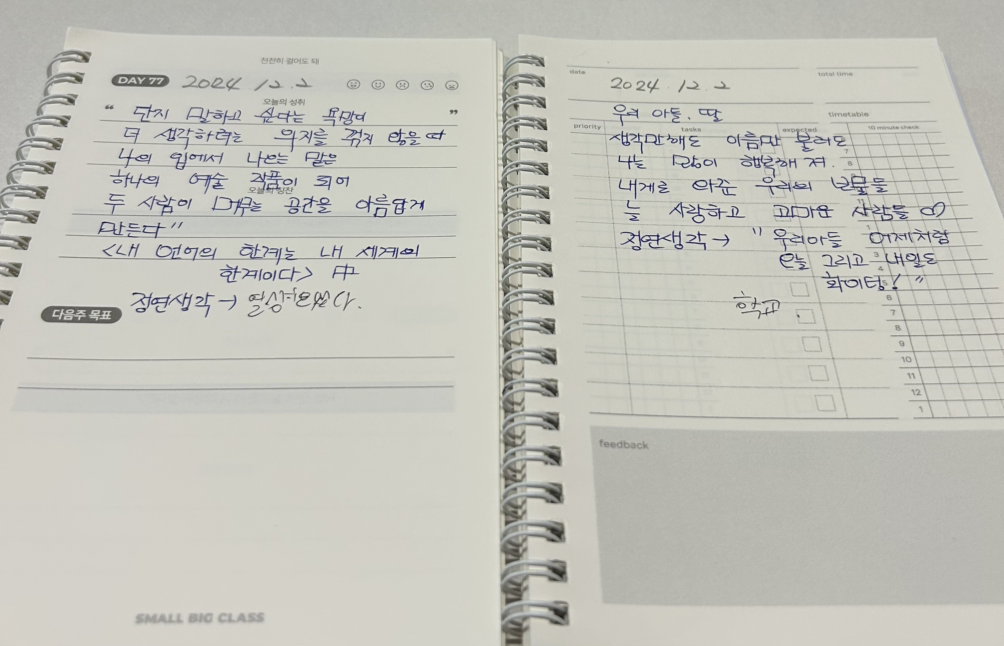 천천히 걸어도 돼
DAY 77 2024. 12. 2
오늘의 성취
“ 단지 말하고 싶다는 욕망이 ”
더 생각하려는 의지를 꺾지 않을 때
나의 입에서 나오는 말은
하나의 예술 작품이 되어
오늘의 칭찬
두 사람이 머무는 공간을 아름답게
만든다”
<내 언어의 한계는 내 세계의
한계이다> 中
정연생각→
다음주 목표
SMALL BIG CLASS
date 2024. 12. 2 total time
우리 아들, 딸
timetable
priority tasks expected 10 minute check
생각만해도 이름만 불러도
나는 많이 행복해 져.
내게로 와준 우리의 보물들
늘 사랑하고 고마운 사람들 ♡
정연생각→ " 우리아들 어제처럼
오늘 그리고 내일도
화이팅! "
학교
7
8
3
4
5
6
7
8
9
10
11
12
1
feedback